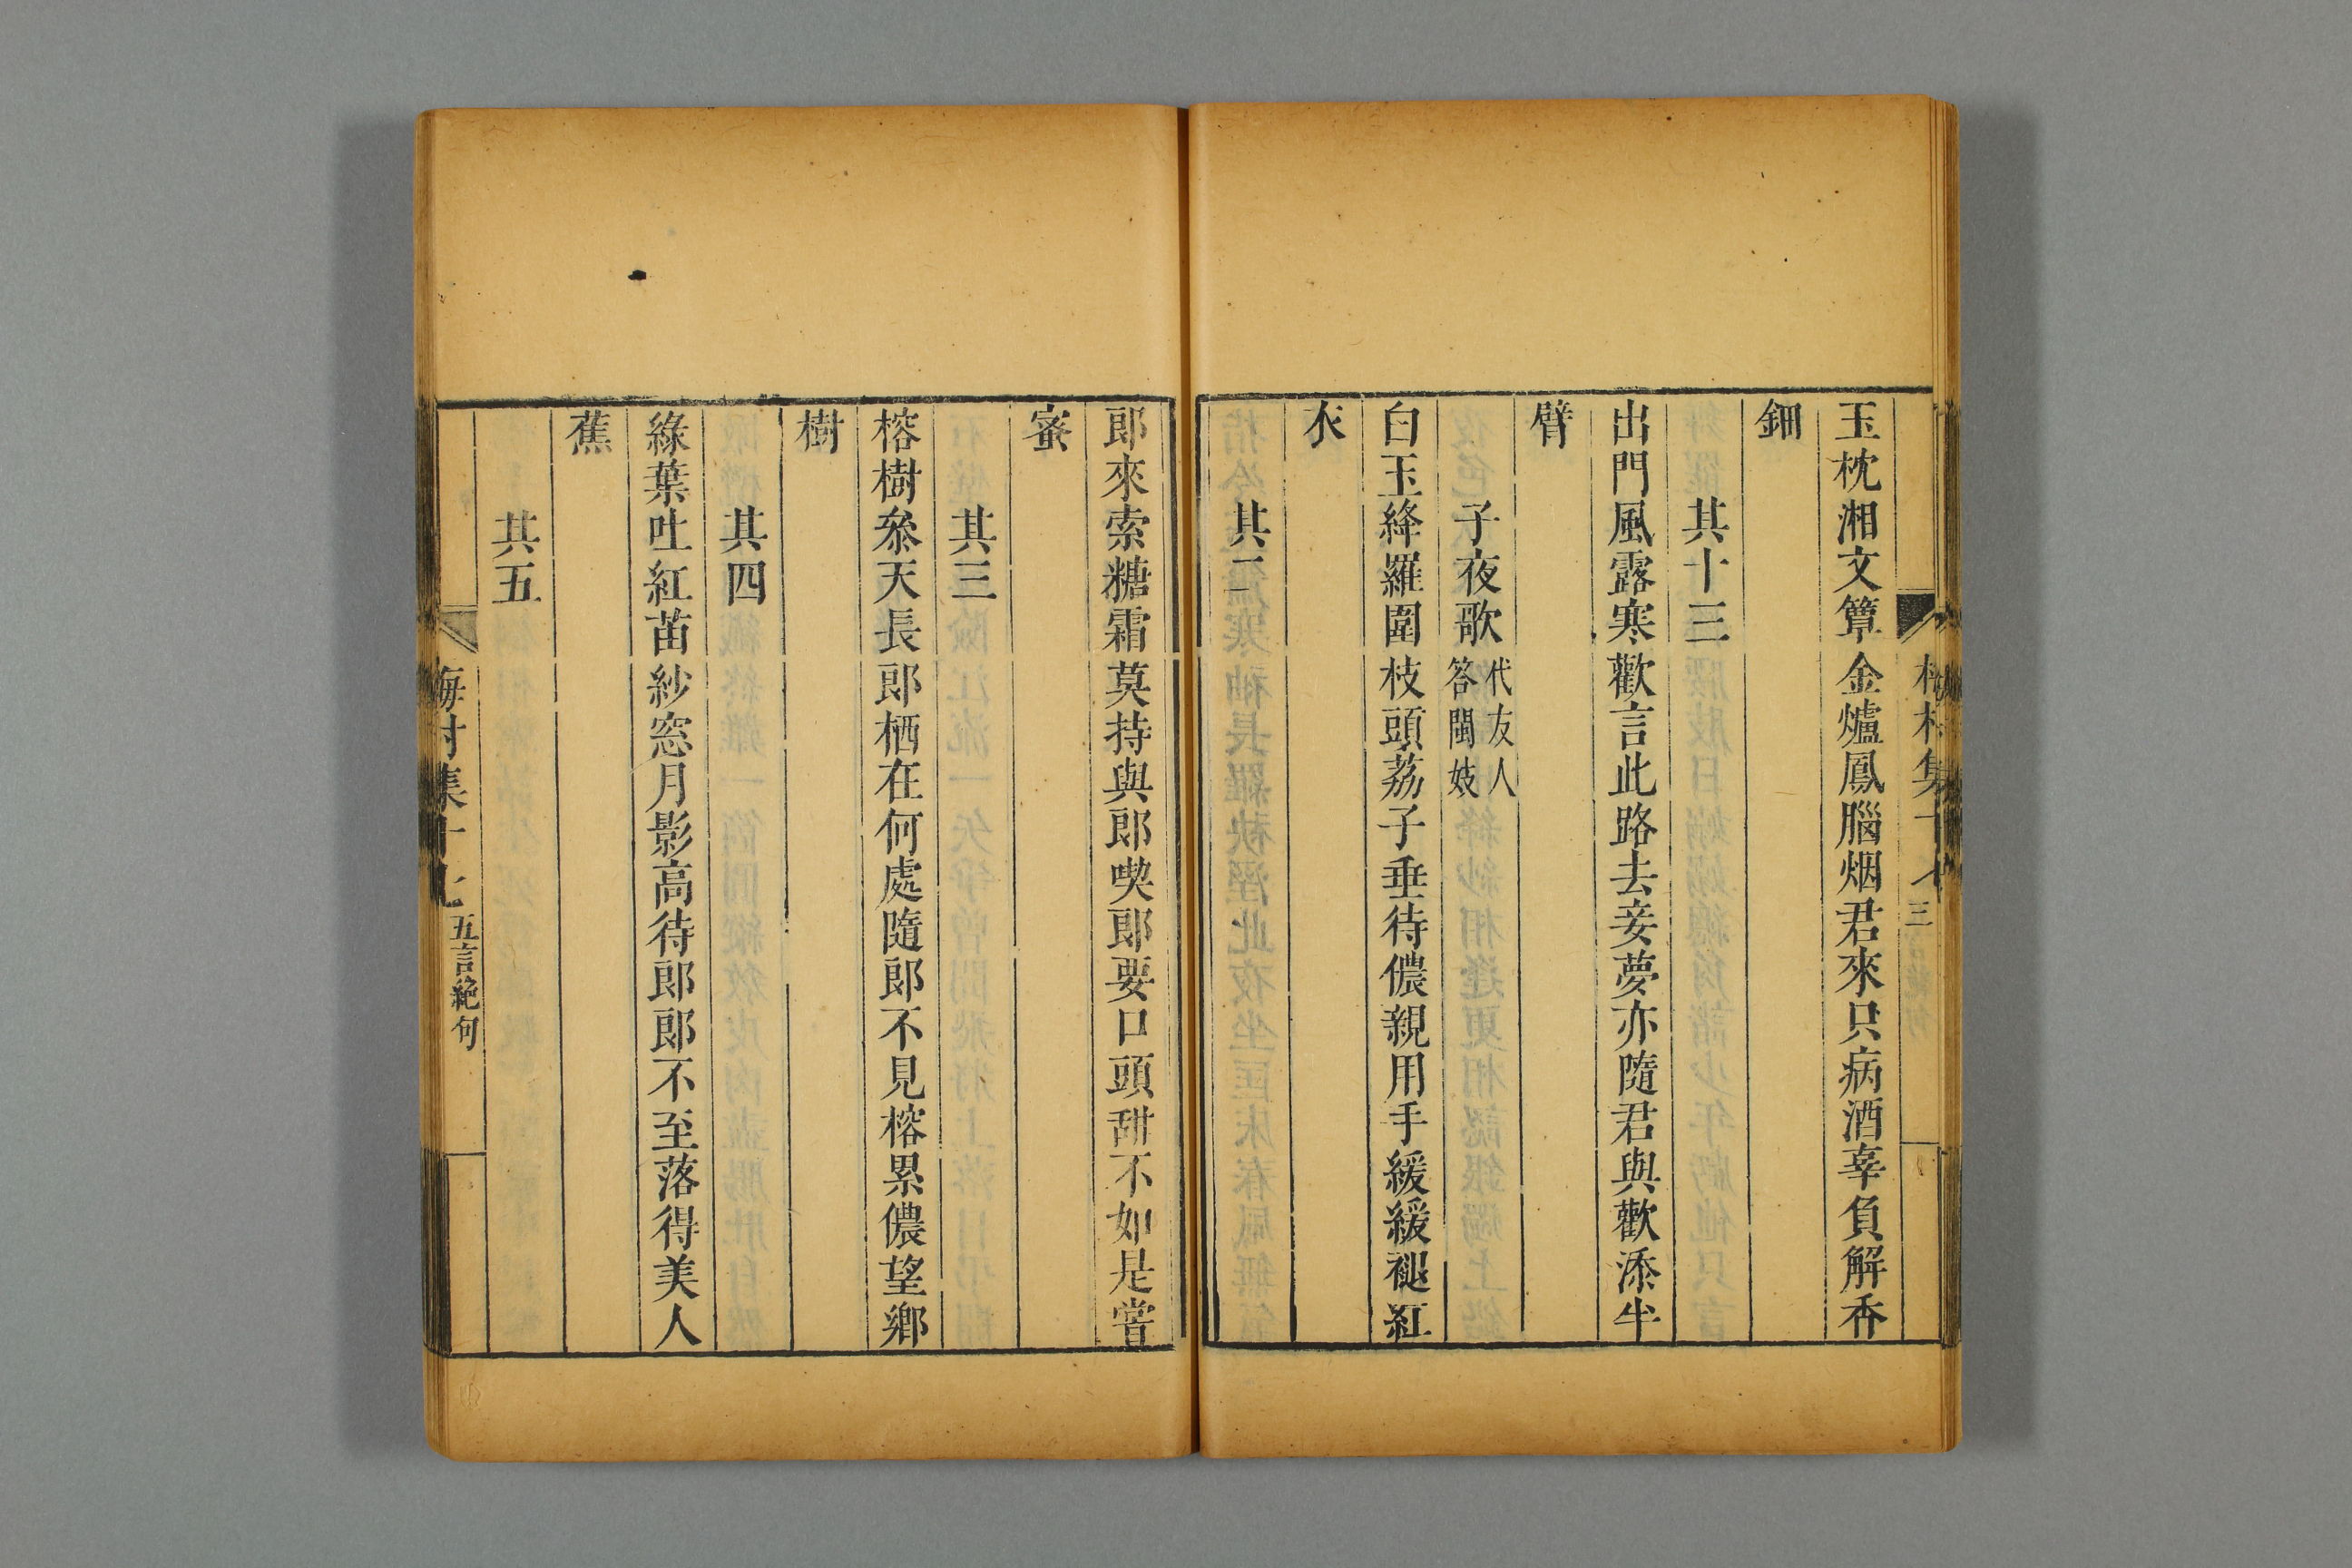 玉枕湘文簟金爐鳳腦烟君來只病酒辜負解香
鈿
其十三
出門風露寒歡言此路去妾夢亦隨君與歡添半
臂
子夜歌代友人答閩妓
白玉絳羅圍枝頭荔子垂待儂親用手緩緩褪紅
衣
其二
郎來索糖霜莫持與郎喫郎要口頭甜不如是嘗
蜜
其三
榕樹叅天長郎栖在何處隨郎不見榕累儂望鄉
樹
其四
綠葉吐紅苗紗窓月影高待郎郎不至落得美人
蕉
其五
梅村集十七
三
梅村集十七
五言絶句